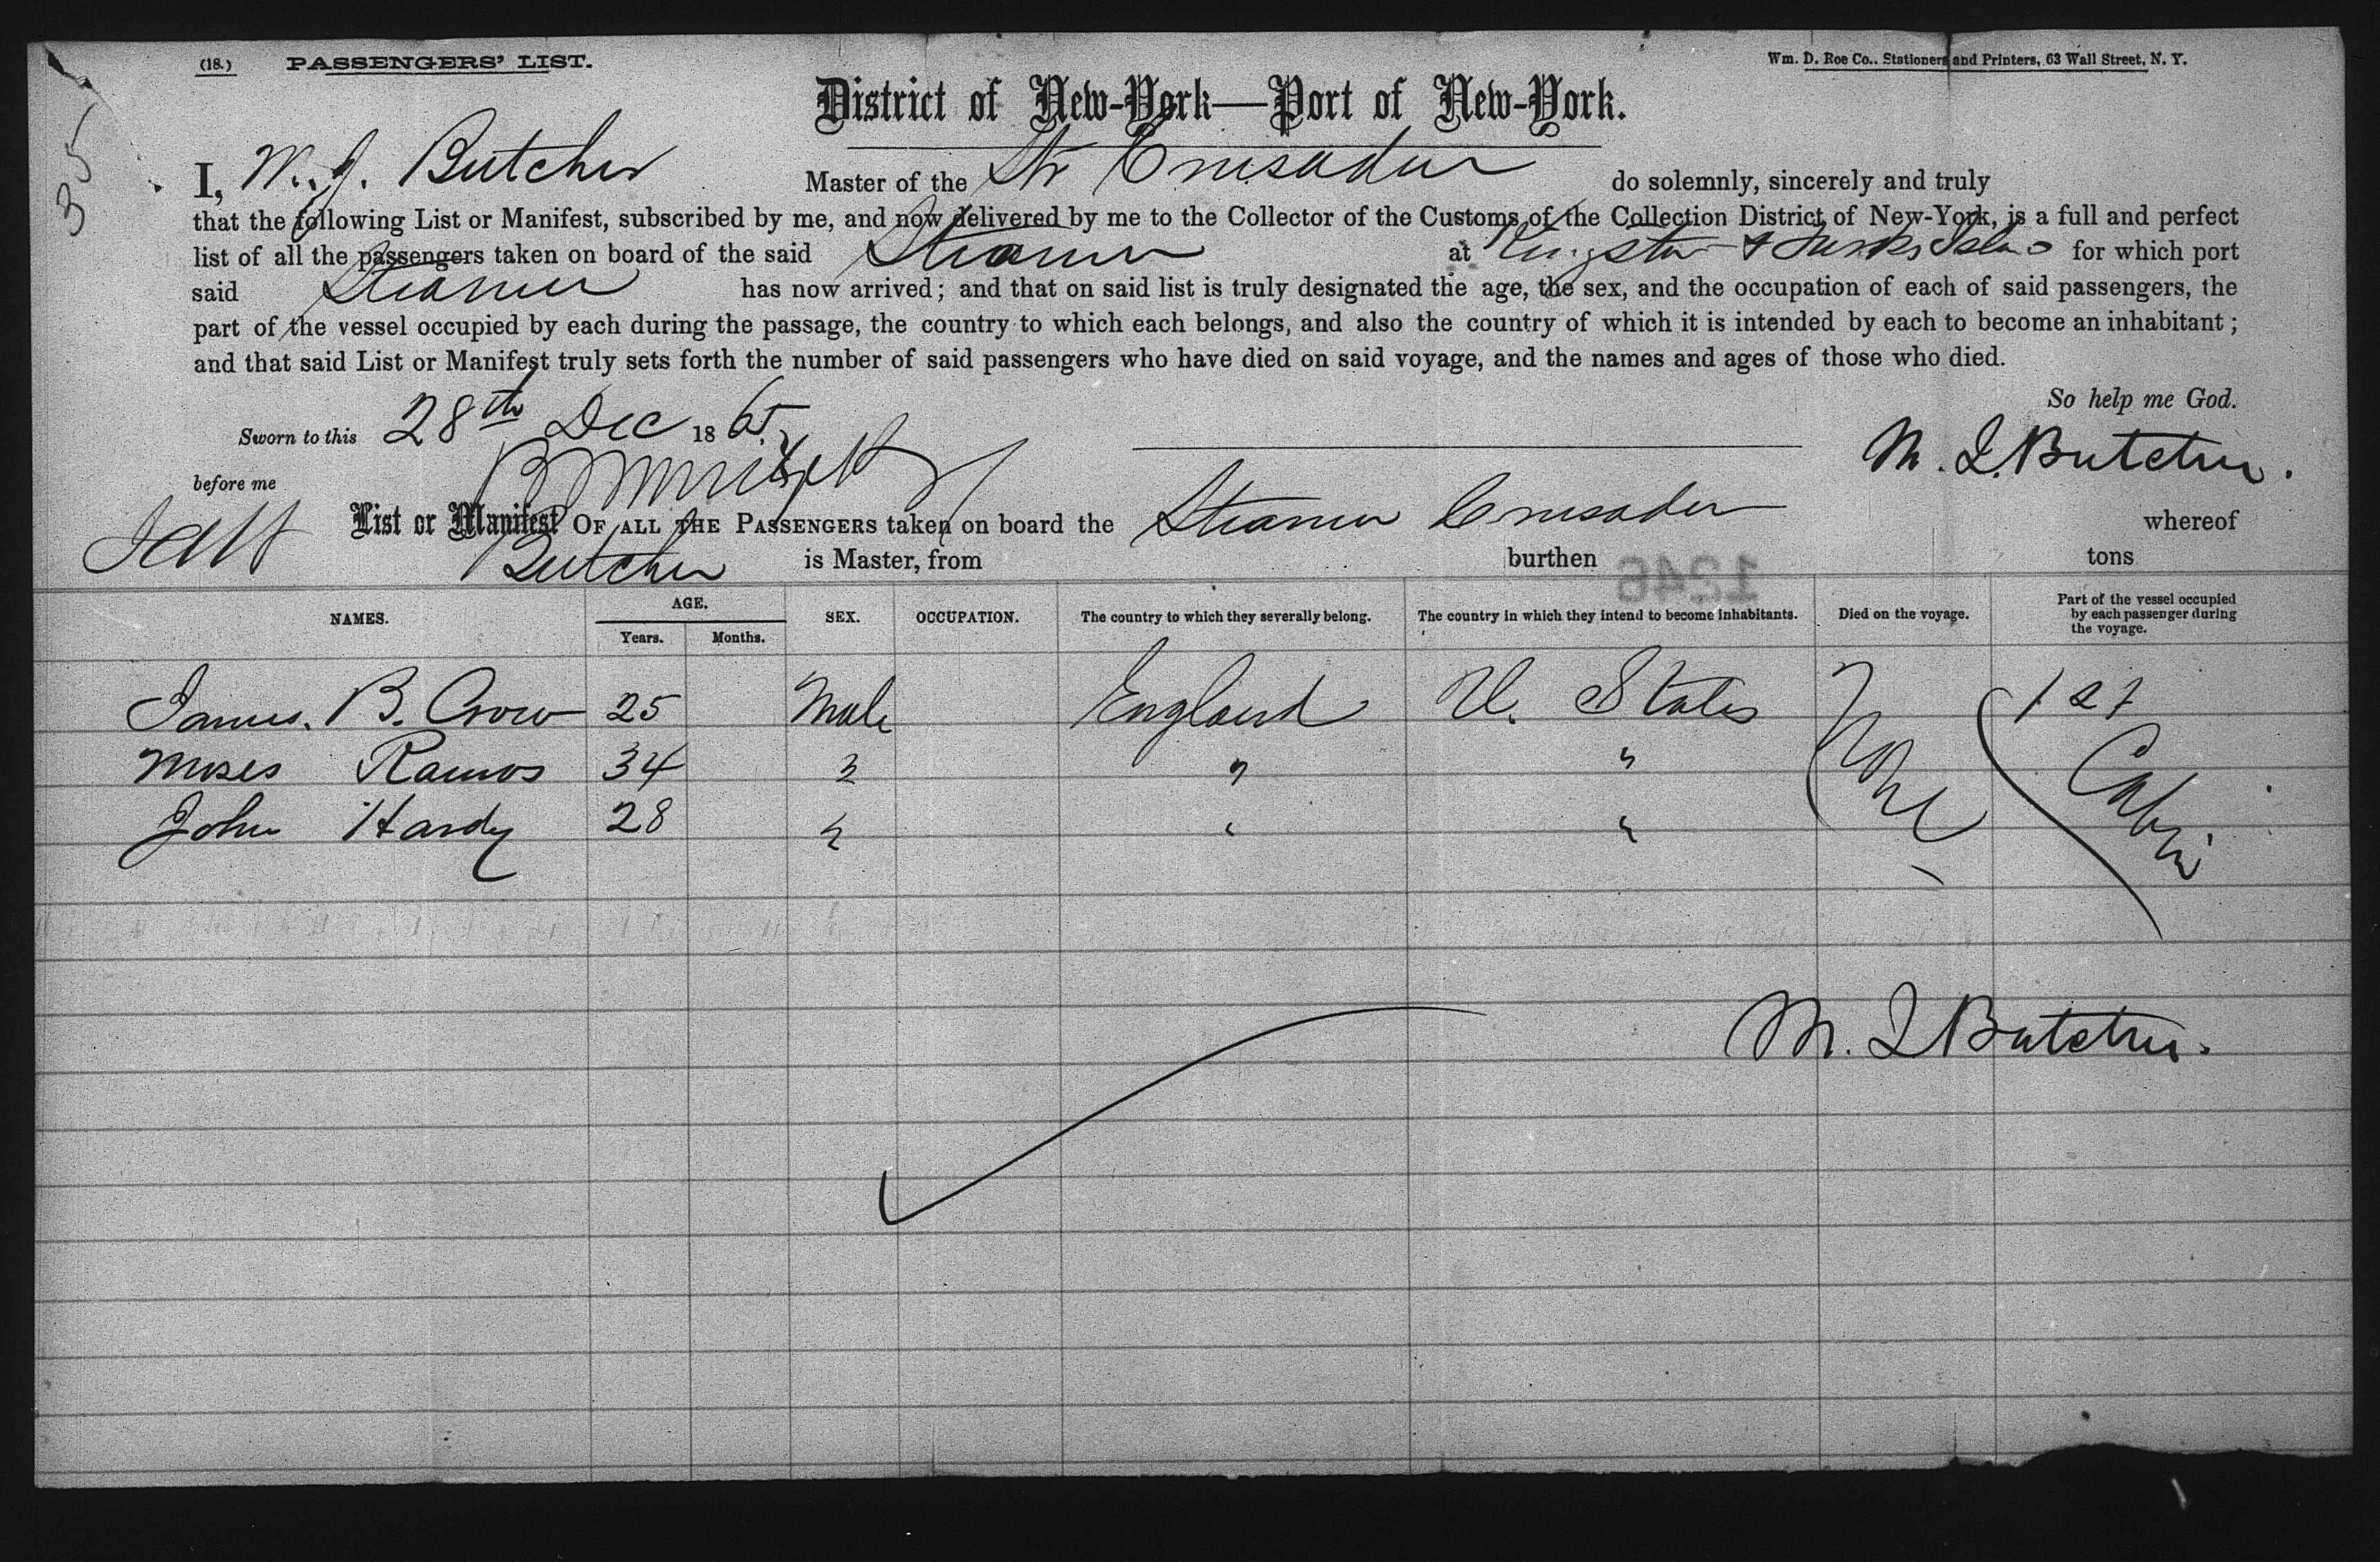 (18.) PASSENGERS' LIST. Wm. D. Roe Co., Stationers and Printers, 63 Wall Street, N. Y.
District of New-York—Port of New-York.
35
I, M. J. Butcher Master of the Str Crusader do solemnly, sincerely and truly
that the following List or Manifest, subscribed by me, and now delivered by me to the Collector of the Customs of the Collection District of New-York, is a full and perfect
list of all the passengers taken on board of the said Steamer at Kingston & Turks Island for which port
said Steamer has now arrived; and that on said list is truly designated the age, the sex, and the occupation of each of said passengers, the
part of the vessel occupied by each during the passage, the country to which each belongs, and also the country of which it is intended by each to become an inhabitant;
and that said List or Manifest truly sets forth the number of said passengers who have died on said voyage, and the names and ages of those who died.
So help me God.
Sworn to this 28th Dec 1865 M. J. Butcher.
before me
List or Manifest OF ALL THE PASSENGERS taken on board the Steamer Crusader whereof
Butcher is Master, from burthen tons
1246
NAMES. AGE. Years. Months. SEX. OCCUPATION. The country to which they severally belong. The country in which they intend to become inhabitants. Died on the voyage. Part of the vessel occupied by each passenger during the voyage.
James. B. Crow 25 Male England U. States None 1st Cabin
Moses Ramos 34 " " "
John Hardy 28 " " "
M. J. Butcher.